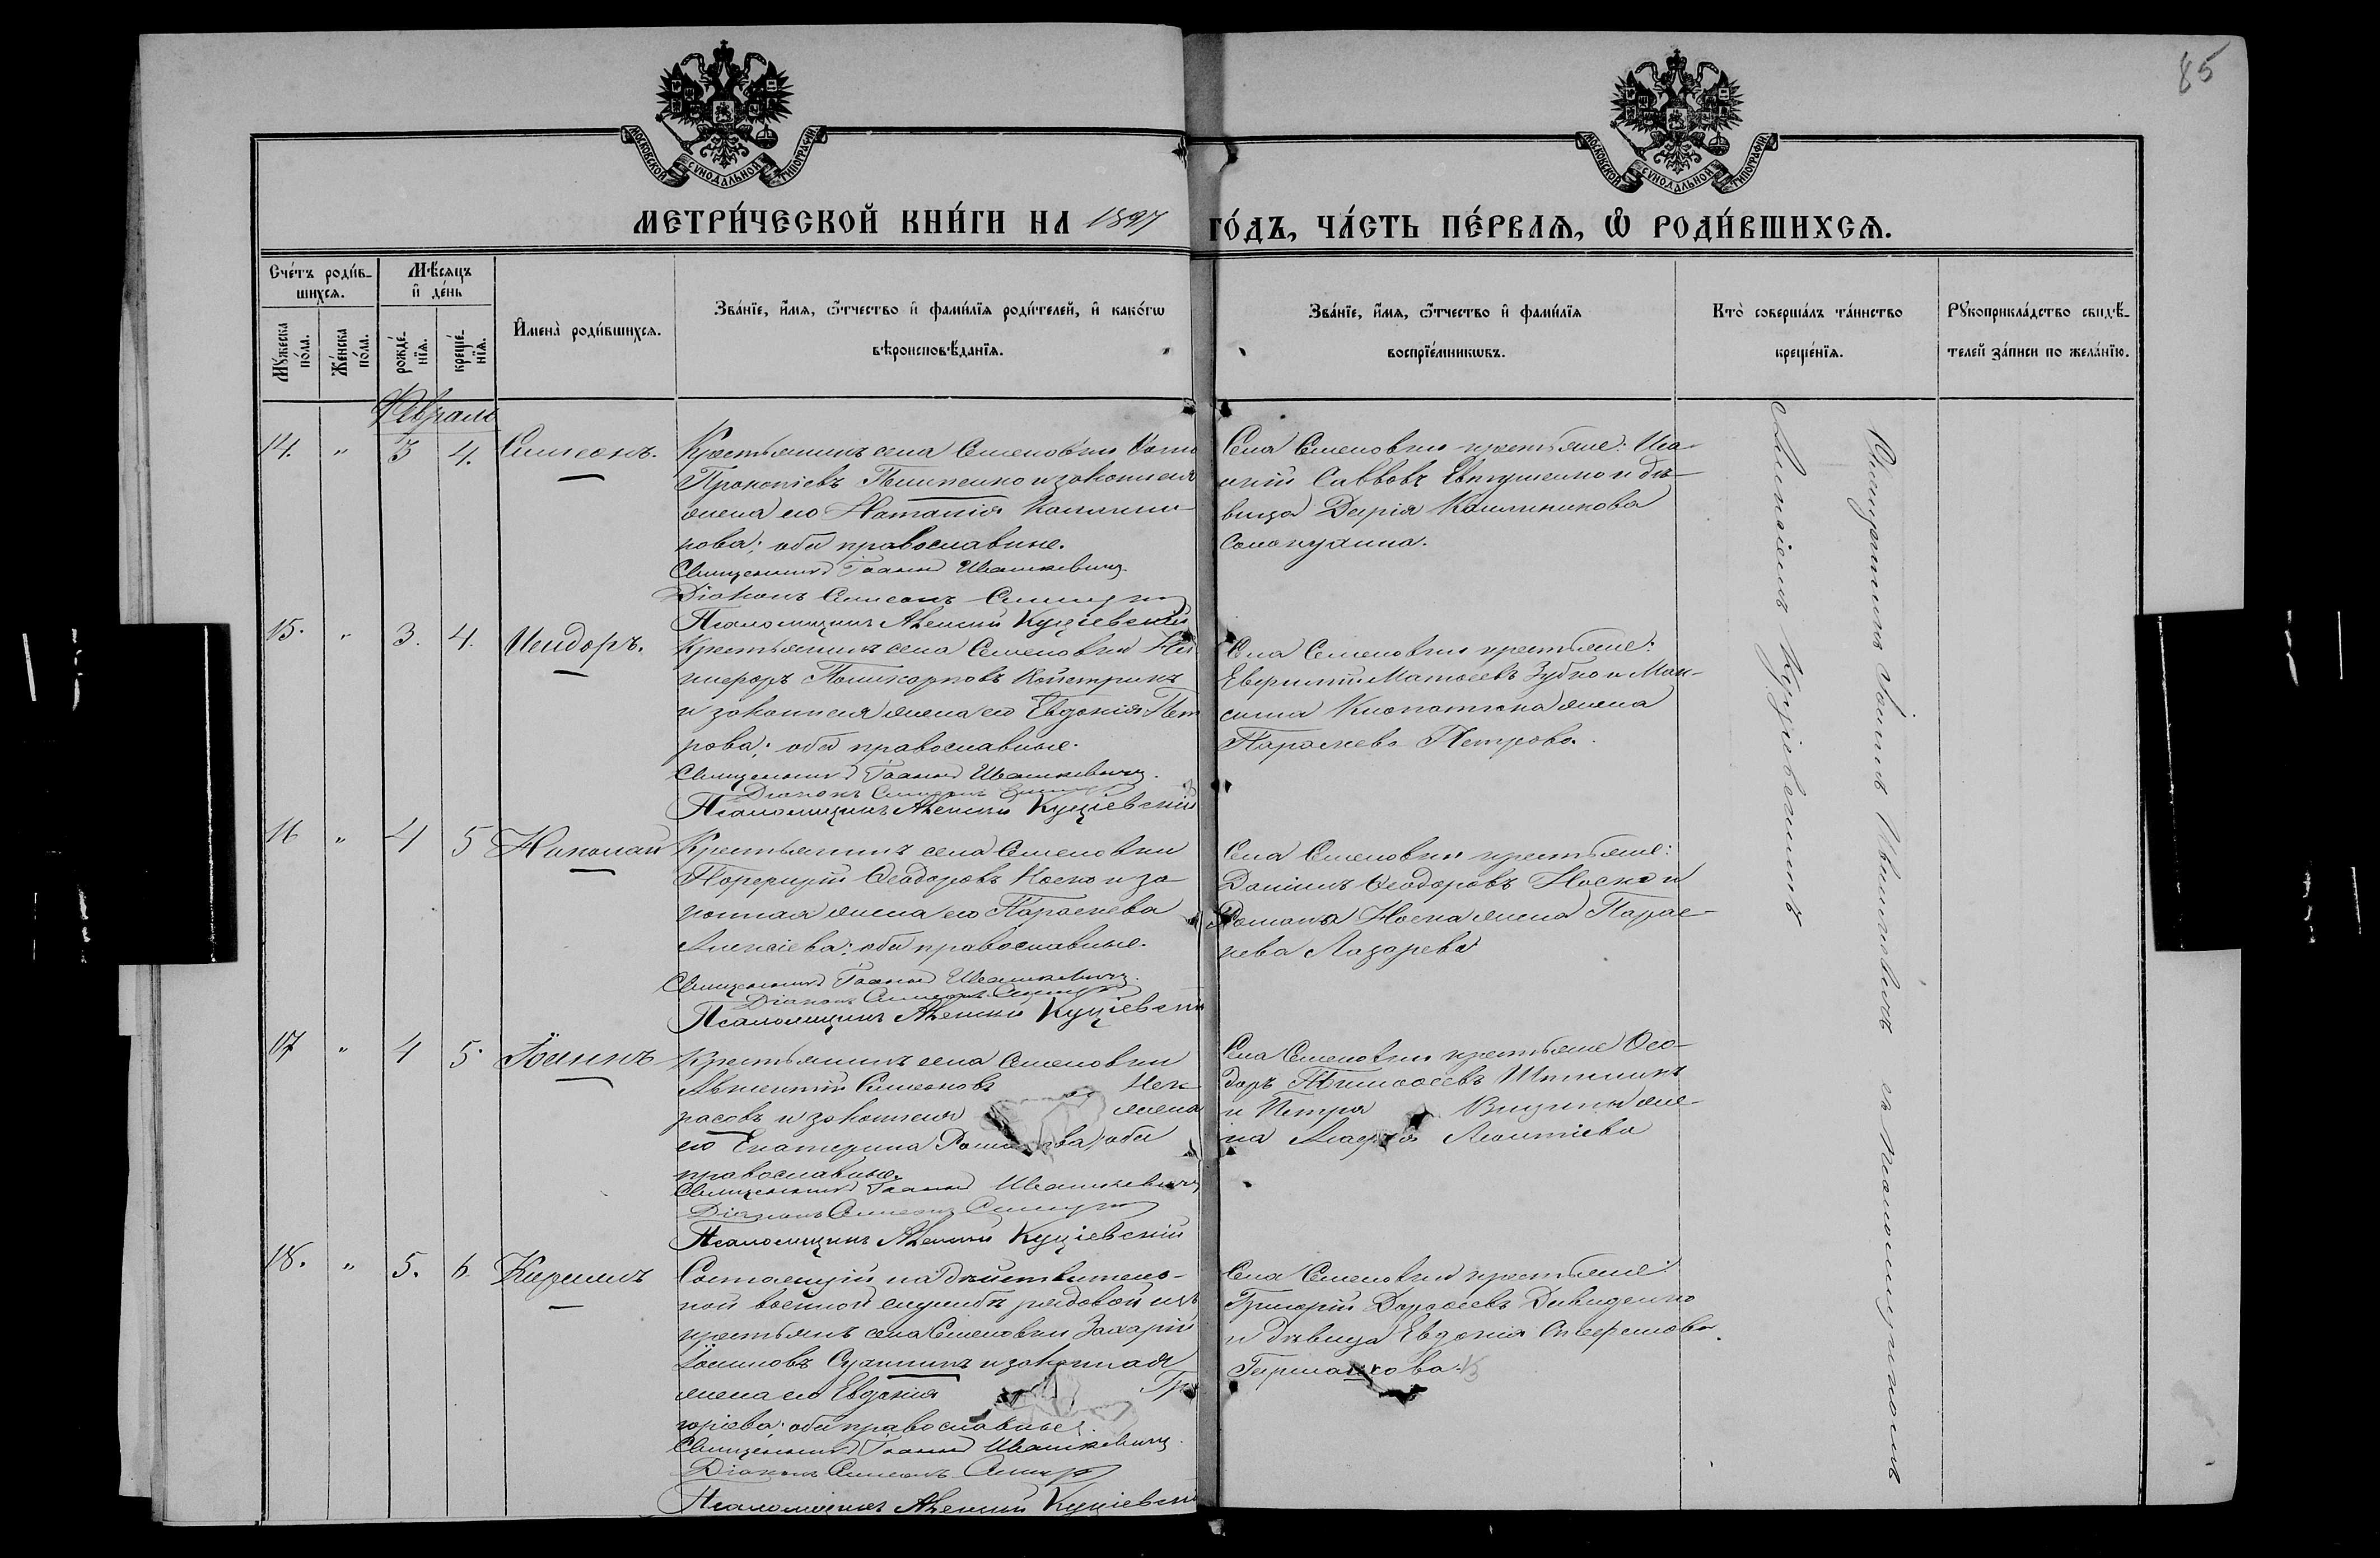 85
МОСКОВСКОЙ СУНОДАЛЬНОЙ ТИПОГРАФІИ
МОСКОВСКОЙ СУНОДАЛЬНОЙ ТИПОГРАФІИ
МЕТРИ́ЧЕСКОЙ КНИ́ГИ НА 1897 ГО́ДЪ, ЧА́СТЬ ПЕ́РВАѦ, Ѡ РОДИ́ВШИХСѦ.
Сче́тъ роди́в-
шихсѧ.
Мꙋ́жеска по́ла.
Же́нска по́ла.
Мѣ́сѧцъ и҆ де́нь
рожде́-нїѧ.
креще́-нїѧ.
И҆мена̀ роди́вшихсѧ.
Зва́нїе, и҆́мѧ, ѻ҆́тчество и҆ фами́лїѧ роди́телей, и҆ како́гѡ
вѣроисповѣ́данїѧ.
Зва́нїе, и҆́мѧ, ѻ҆́тчество и҆ фами́лїѧ
воспрїе́мникѡвъ.
Кто̀ соверша́лъ та́инство
креще́нїѧ.
Рꙋкоприкла́дство свидѣ́-
телей за́писи по жела́нїю.
Февраль
14. " 3 4. Симеонъ.
Крестьянинъ села Семеновки
Прокопіевъ и законная
жена его Наталія Каллини-
кова; оба православные.
Священникъ Іоаннъ Ивашкевичъ
Діаконъ Симеонъ
Псаломщикъ Алексій Куціевскій
Села Семеновки крестьяне: Иса-
акій Саввовъ Евтушенко и дѣ-
вица Дарія Каллиникова
Солопухина.
15. " 3. 4. Исидоръ.
Крестьянинъ села Семеновки Ни-
кифоръ Поликарповъ
и законная жена его Евдокія Пет
рова; оба православные.
Священникъ Іоаннъ Ивашкевичъ.
Діаконъ Симеонъ
Псаломщикъ Алексій Куціевскій
Села Семеновки крестьяне:
Матѳеевъ Зубко и Мак-
сима жена
Параскева Петрова.
16 " 4 5 Николай
Крестьянинъ села Семеновки
Порфирій Ѳеодоровъ Носко и за-
конная жена его Параскева
Алексіева; оба православные.
Священникъ Іоаннъ Ивашкевичъ.
Діаконъ Симеонъ
Псаломщикъ Алексій Куціевскій
Села Семеновки крестьяне:
Даніилъ Ѳеодоровъ Носко и
Романа Носка жена Парас-
кева Лазарева
17 " 4 5. Іоаннъ
Крестьянинъ села Семеновки
Симеоновъ Нек
расовъ и законная жена
его Екатерина оба
православные.
Священникъ Іоаннъ Ивашкевичъ
Діаконъ Симеонъ
Псаломщикъ Алексій Куціевскій
Села Семеновки крестьяне Ѳео-
доръ Тимоѳеевъ
и Петра же-
на Леонтіева
18. " 5. 6. Кириллъ
Состоящій на дѣйствитель-
ной военной службѣ рядовой изъ
крестьянъ села Семеновки Захарій
Іосифовъ и законная
жена его Евдокія Гри
горіева; оба православные.
Священникъ Іоаннъ Ивашкевичъ.
Діаконъ Симеонъ
Псаломщикъ Алексій Куціевскій
Села Семеновки крестьяне:
Григорій Давиденко
и дѣвица Евдокія
Священникъ Іоаннъ Ивашкевичъ съ псаломщикомъ
Алексіемъ Куціевскимъ